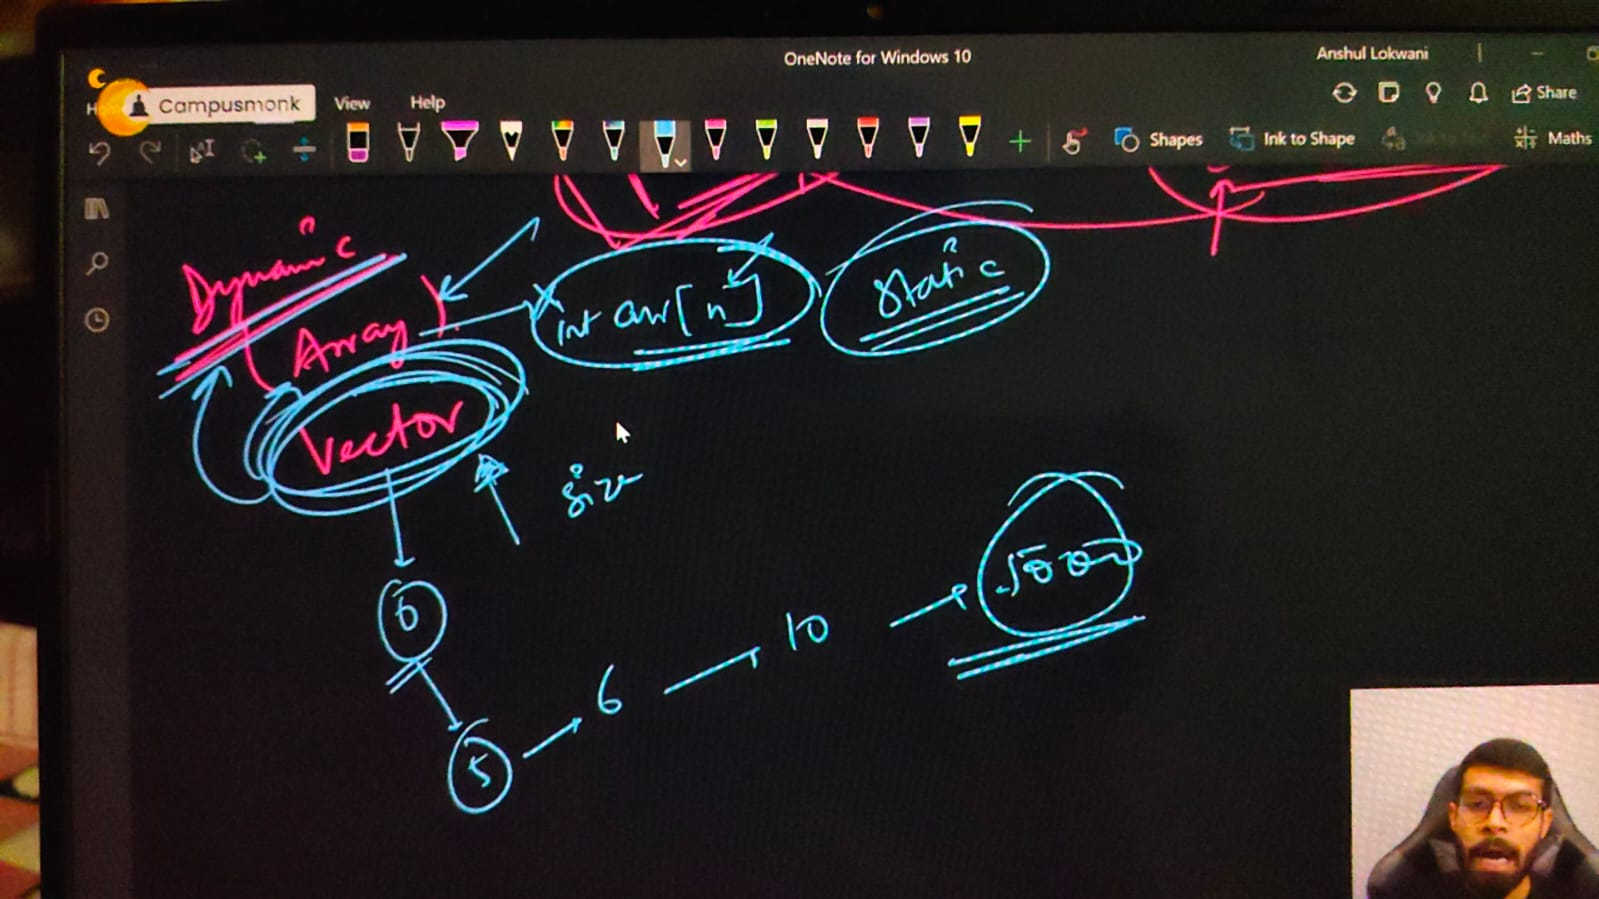 OneNote for Windows 10
Anshul Lokwani
Campusmonk
View
Help
Share
Shapes
Ink to Shape
Maths
Dynamic
(Array)
int arr[n]
static
Vector
size
6
5
6
10